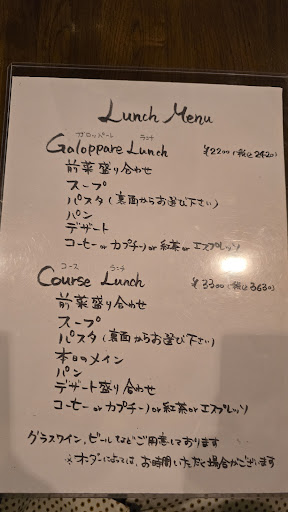 Lunch Menu
ガロッパーレ ランチ
Galoppare Lunch ¥2200 (税込2420)
前菜盛り合わせ
スープ
パスタ (裏面からお選び下さい)
パン
デザート
コーヒー or カプチーノ or 紅茶 or エスプレッソ
コース ランチ
Course Lunch ¥3300 (税込3630)
前菜盛り合わせ
スープ
パスタ (裏面からお選び下さい)
本日のメイン
パン
デザート盛り合わせ
コーヒー or カプチーノ or 紅茶 or エスプレッソ
グラスワイン、ビールなどご用意しております
※オーダーによっては、お時間いただく場合がございます